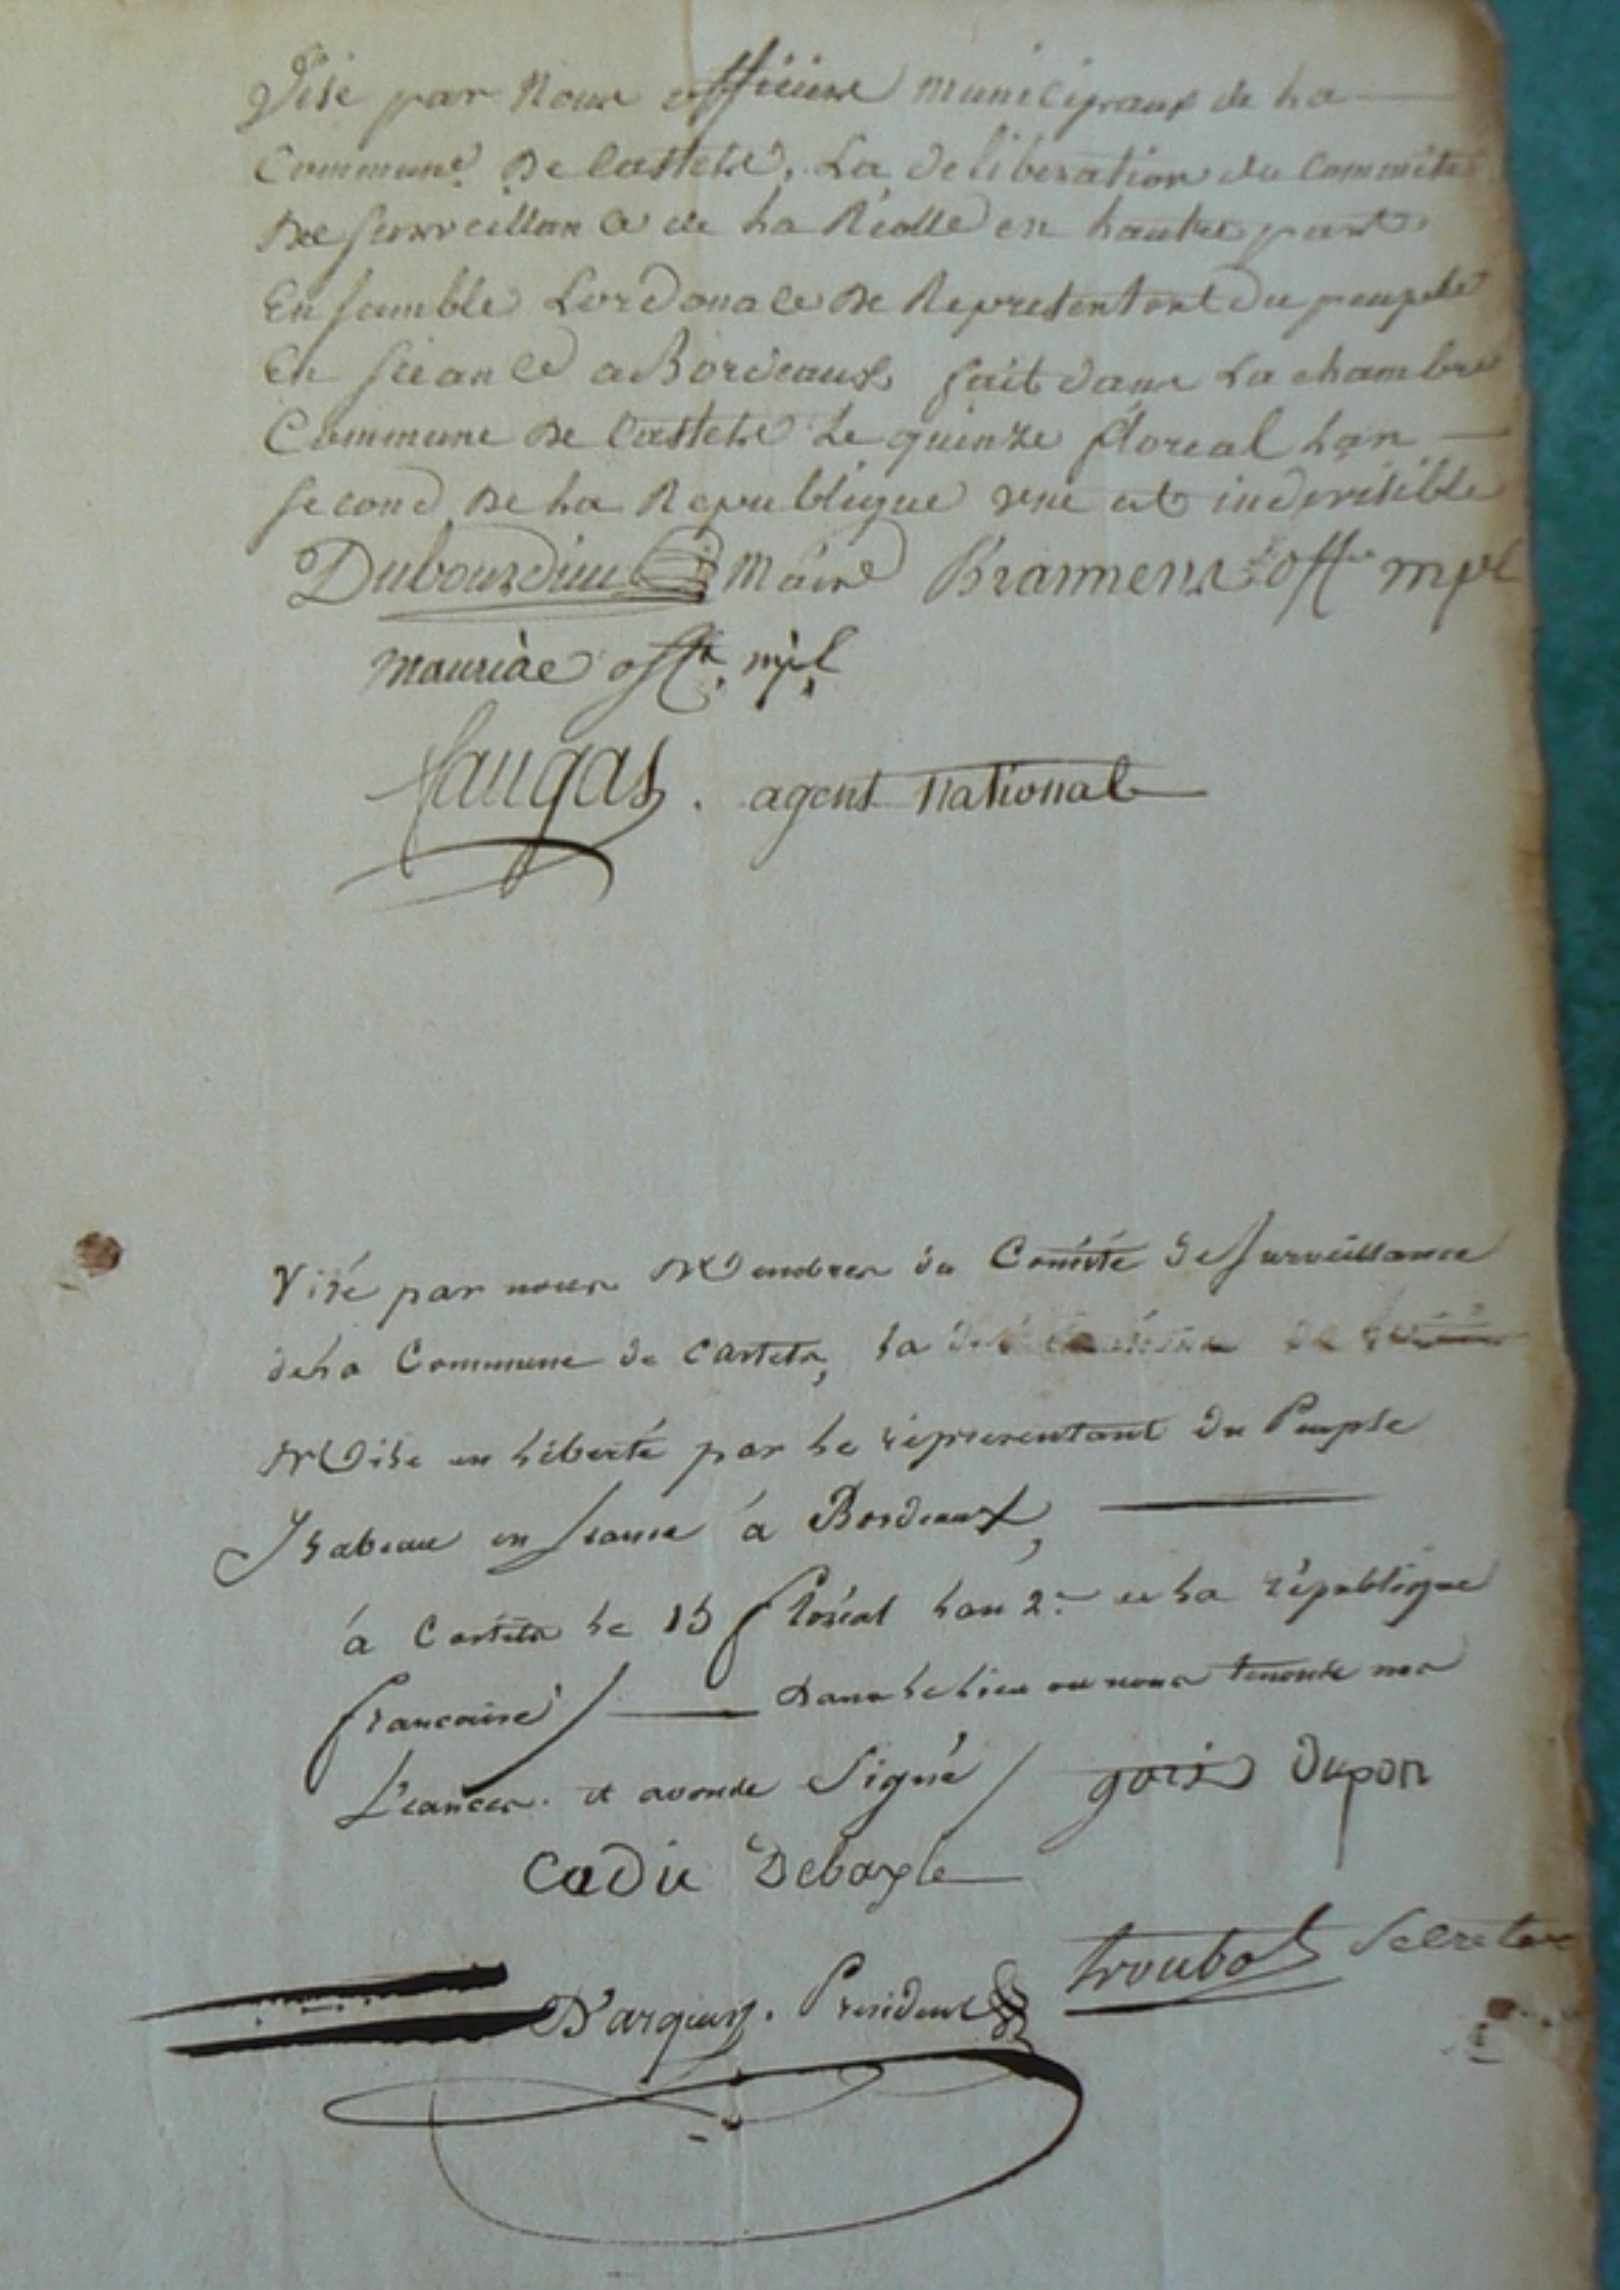 Visé par Nous officiers municipaux de La
Commune De Castets, La deliberation du Commité
De surveillance de La Réolle en hautre part,
Ensamble Lordonace De Representent Du peuple
En séance a Bordeaux, fait dans La chambre
Commune De Castets Le quinze floreal Lan
second De La Republique une et indivisible
Dubourdieu Maire Brannens offr mpl
mauriac offr mpl
faugas. agent national
Visé par nous Membres du Comité de Surveillance
de La Commune de Castets, La
Mise en Liberté par Le réprésentant Du Peuple
Isabeau en séance à Bordeaux,
à Castets Le 15 floréal Lan 2e de La république
francaise / Dans Le Lieu ou nous tenons nos
séances. et avons Signé / gois Dupon
Cadis Debayle
Troubat Secretere
D'arquey. President